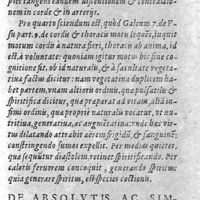 pter tangens eandem dissentionem & contradictio-
nem in corde & in arterijs.
Pro quarto sciendum est, quòd Galenus 7. de V-
su part. 9. de cordis & thoracis motu loquẽs, inquit
motum cordis à natura fieri, thoracis ab anima, id
est, à voluntate: quoniam igitur motus hic sine co-
gnitione fit, ob id naturalis, & à facultate vegeta-
tiua factus dicitur: nam vegetatiua duplicem ha-
bet partem, vnam altioris ordinis, quæ pulsatilis &
spiritifica dicitur, quia præparat ad vitam, aliam in-
fimi ordinis, quia propriè naturalis vocatur, vt est
nutritiua, generatiua, ac augmẽtatiua: vnde hæc vir-
tus dilatando attrahit aërem frigidũ, & sanguinẽ:
constringendo fumos expellit. Per medias quietes,
quæ sequũtur diastolem retinet spiritificando. Per
calores feruorem concoquit, generando spiritus:
quia generare spiritus, est species coctionis.
DE ABSOLVTIS, AC SIM-